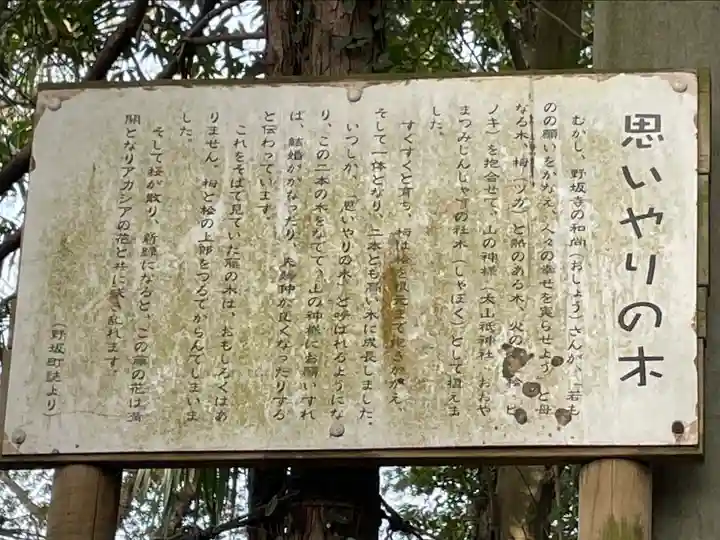 思いやりの木
むかし、野坂寺の和尚(おしょう)さんが、「若も
のの願いをかなえ、人々の幸せを実らせよう」と母
なる木、栂(ツガ)と熱のある木、火の 桧(ヒ
ノキ)を抱合せて、山の神様(大山祇神社、おおや
まつみじんしゃ)の社木(しゃぼく)として植えま
した。
すくすくと育ち、栂は桧を根元まで抱きかかえ、
そして一体となり、二本とも高い木に成長しました。
いつしか、「思いやりの木」と呼ばれるようにな
り、この二本の木をなでて、山の神様にお願いすれ
ば、結婚がかなったり、夫婦仲が良くなったりする
と伝わっています。
これをそばで見ていた藤の木は、おもしろくはあ
りません。栂と桧の上部をつるでからんでしまいま
した。
そして桜が散り、新緑になると、この藤の花は満
開となりアカシアの花と共に咲き乱れます。
(野坂町誌より)